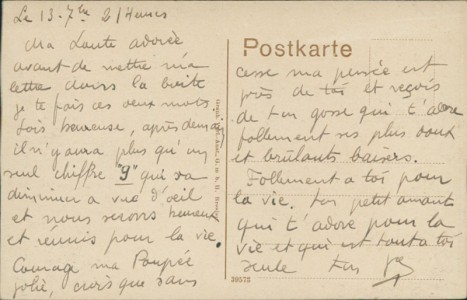 Le 13-7bre 21 Heures
Ma Loute adorée
avant de mettre ma
lettre dans la boite
je te fais ces deux mots.
Sois heureuse, après demain
il n'y aura plus qu'un
seul chiffre "9" qui va
diminuer à vue d'oeil
et nous serons heureux
et réunis pour la vie.
Courage ma Poupée
jolie, crois que sans
Postkarte
cesse ma pensée est
près de toi et reçois
de ton gosse qui t'adore
follement ses plus doux
et brûlants baisers.
Follement a toi pour
la vie. ton petit amant
qui t'adore pour la
vie et qui est tout a toi
seule ton
39575